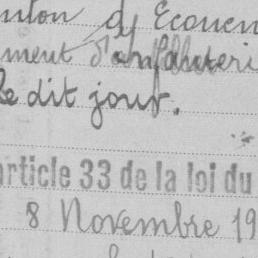 d'Ecouen
ment d'infanteri
le dit jour.
article 33 de la loi du
8 Novembre 19